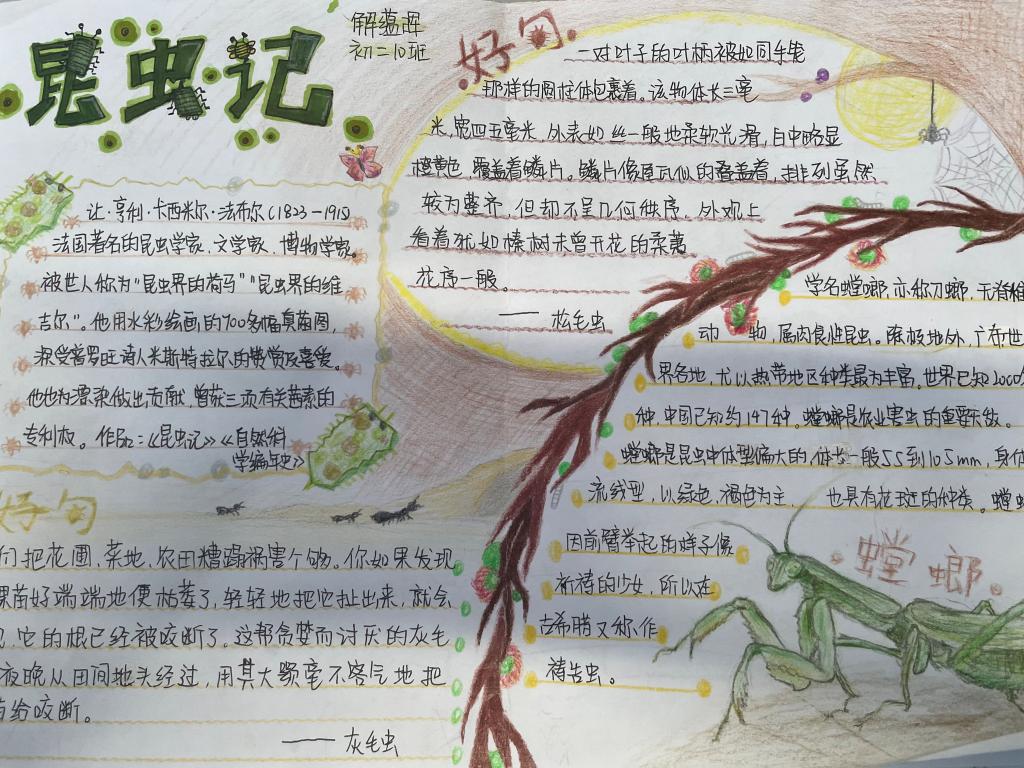 昆虫记
解蕴晖
初二10班
让·亨利·卡西米尔·法布尔(1823-1915)
法国著名的昆虫学家、文学家、博物学家。
被世人称为“昆虫界的荷马”“昆虫界的维
吉尔”。他用水彩绘画的700多幅真菌图,
深受普罗旺诗人米斯特拉尔的赞赏及喜爱。
他也为漂染做出贡献,曾获三项有关茜素的
专利权。作品:《昆虫记》《自然科
学编年史》
好句
们把花圃、菜地、农田糟蹋祸害个够。你如果发现
棵苗好端端地便枯萎了,轻轻地把它扯出来,就会
它的根已经被咬断了。这帮贪婪而讨厌的灰毛
夜晚从田间地头经过,用其大颚毫不客气地把
给咬断。
—— 灰毛虫
好句
一对叶子的叶柄被如同手笼
那样的圆柱体包裹着。该物体长三毫
米,宽四五毫米,外表如丝一般地柔软光滑,白中略显
橙黄色,覆盖着鳞片。鳞片像屋瓦似的叠盖着,排列虽然
较为整齐,但却不呈几何秩序。外观上
看着犹如榛树未曾开花的柔荑
花序一般。
—— 松毛虫
学名螳螂,亦称刀螂,无脊椎
动物,属肉食性昆虫。除极地外,广布世
界各地,尤以热带地区种类最为丰富。世界已知2000
种,中国已知约147种。螳螂是农业害虫的重要天敌。
螳螂是昆虫中体型偏大的,体长一般55到105mm,身体
流线型,以绿色、褐色为主,也具有花斑的种类。螳螂
因前臂举起的样子像
祈祷的少女,所以在
古希腊又称作
祷告虫。
螳螂